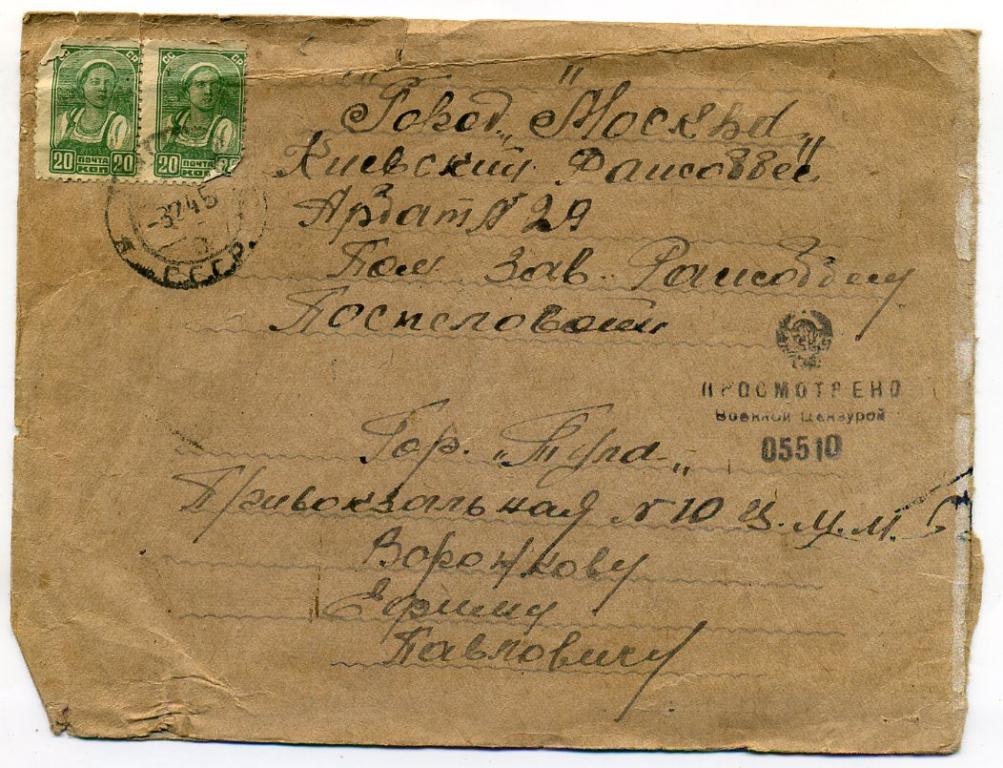 СССР
20 ПОЧТА 20
КОП
СССР
20 ПОЧТА
КОП
-3 2 45
СССР.
Город „Москва„
Киевский Райсоббес
Арбат № 29
Пом зав. Райсоббесу
ПРОСМОТРЕНО
Военной Цензурой
05510
Гор. „Тула„
Привокзальная № 10 Ц.М.М.
Воронкову
Ефиму
Павловичу